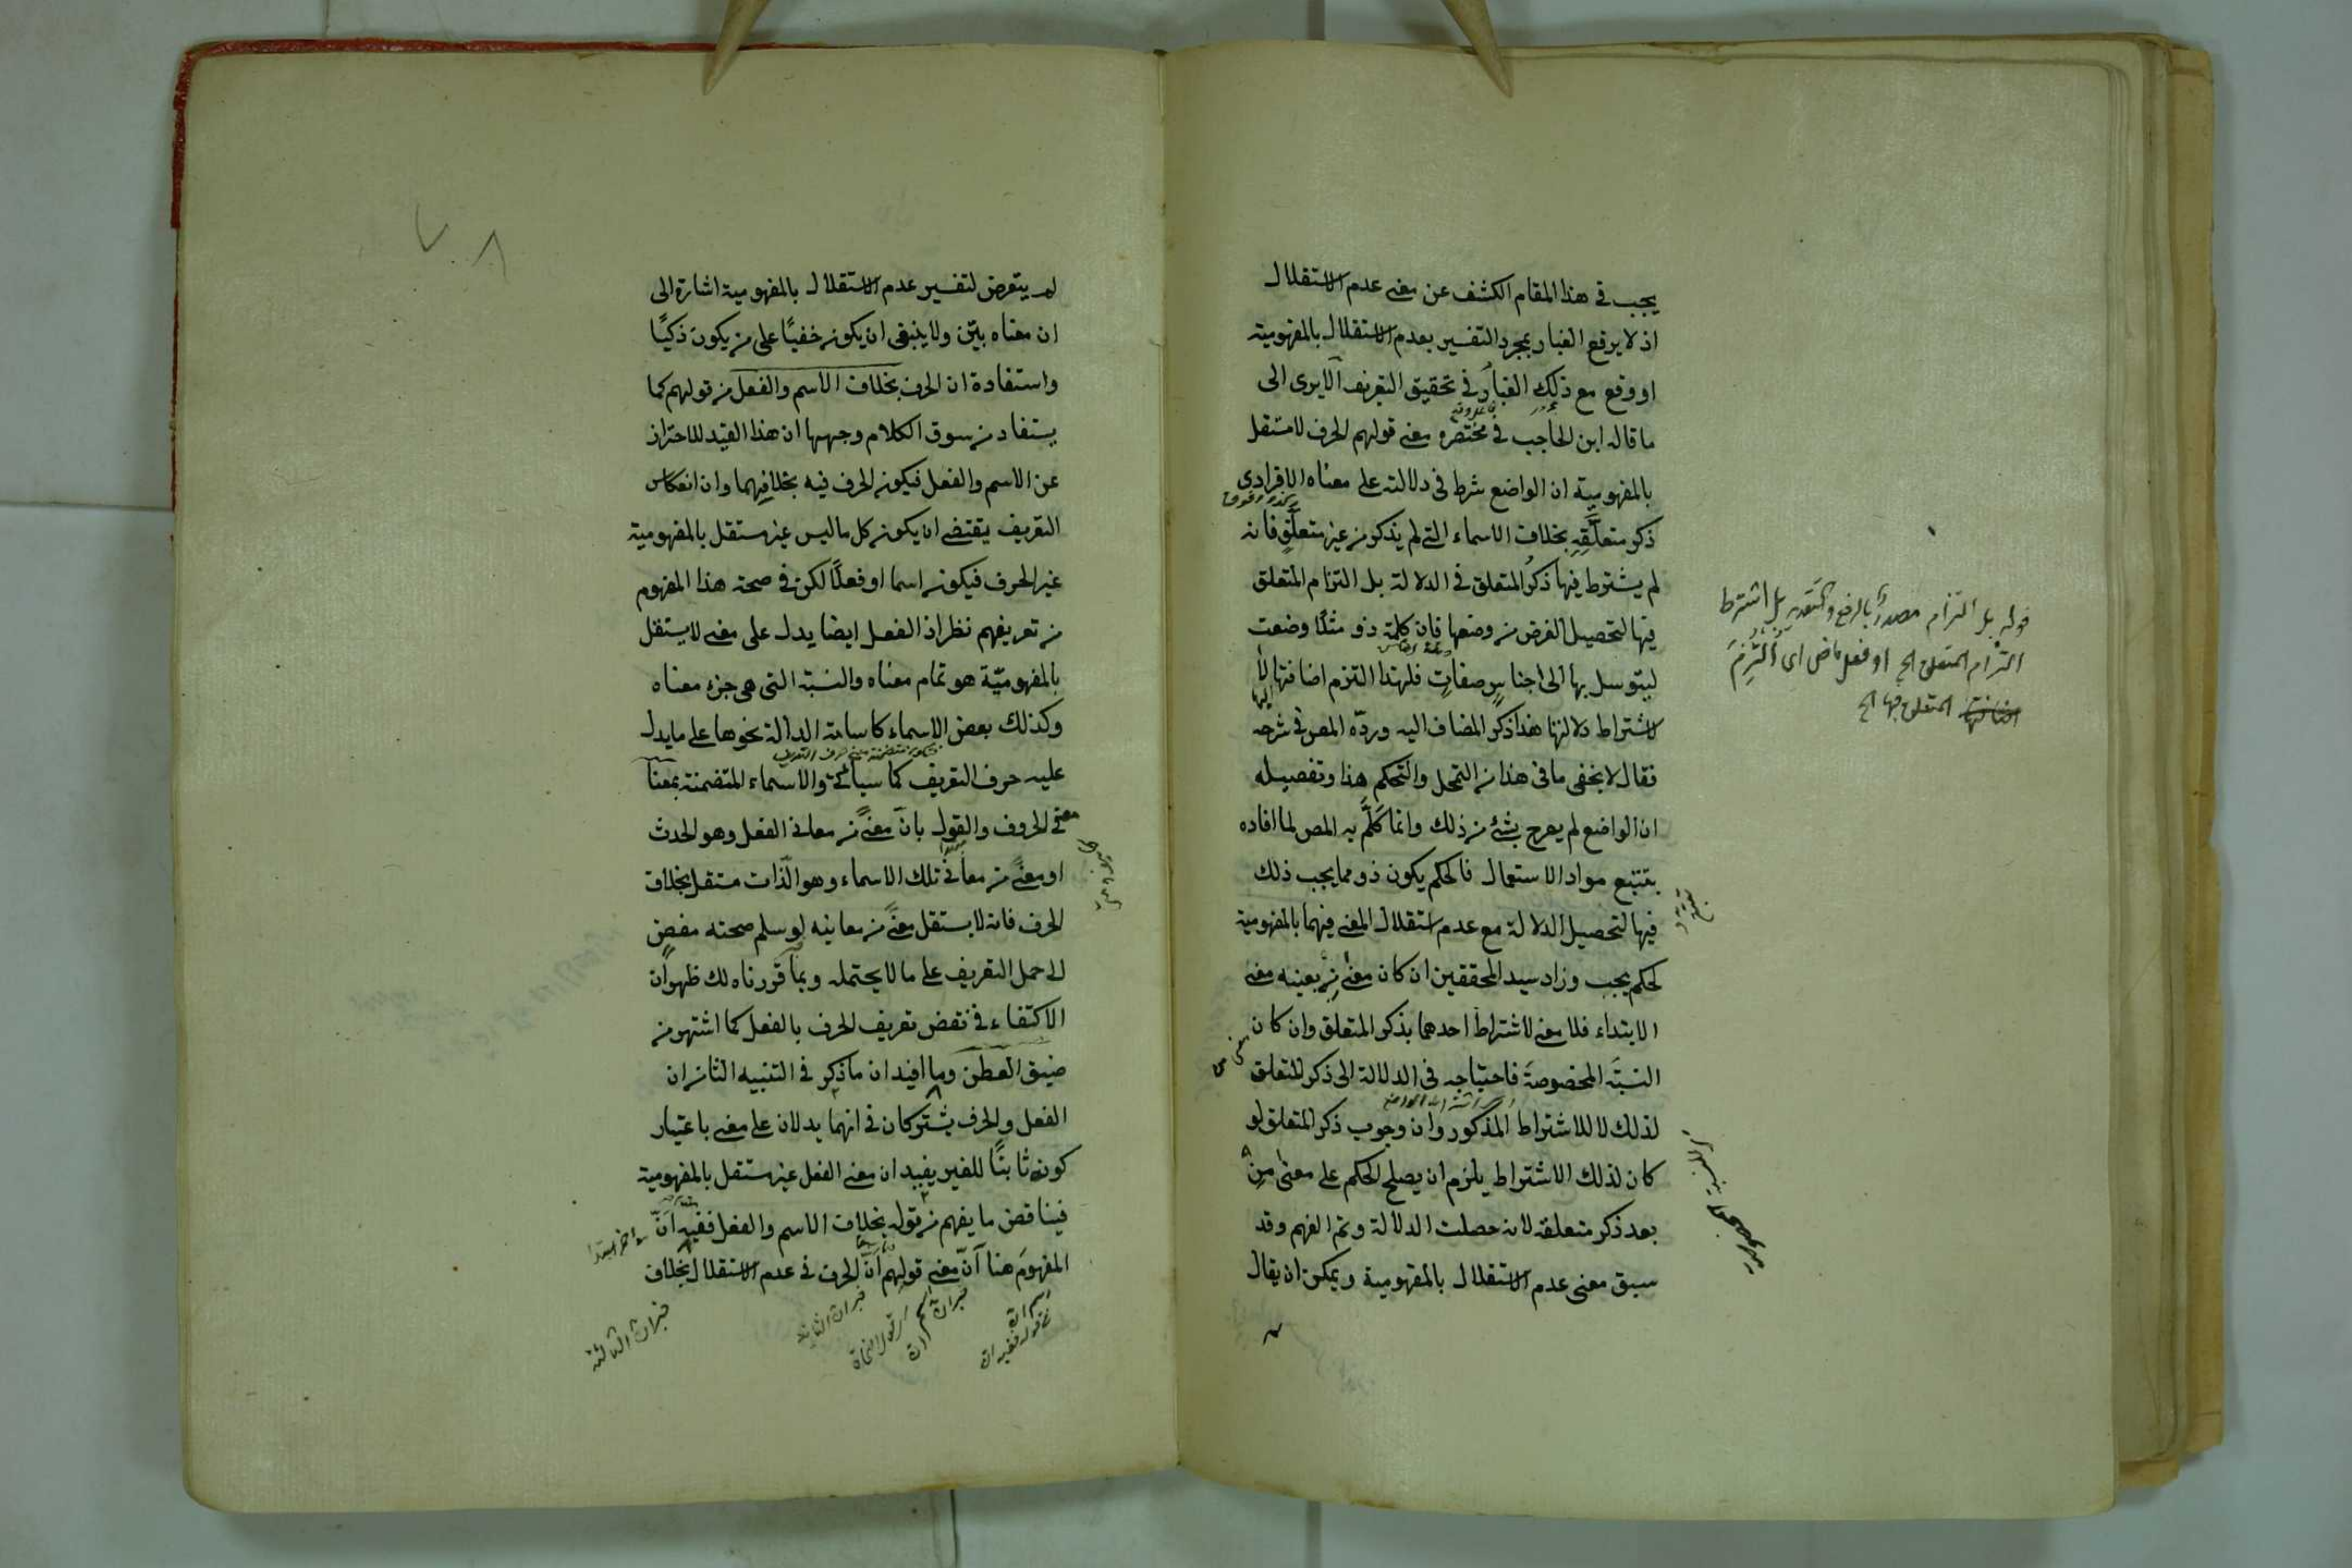 يجب في هذا المقام الكشف عن معنى عدم الاستقلال
اذ لا يرفع الغبار بمجرد التفسير بعدم الاستقلال بالمفهومية
او وقع مع ذلك الغبار في تحقيق التعريف الايرى الى
ما قاله ابن الحاجب في مختصره معنى قولهم الحرف لا مستقل
بالمفهومية ان الواضع شرط في دلالته على معناه الافرادى
ذكر متعلَّقِهِ بخلاف الاسماء التى لم يذكر من غير متعلّقٍ فانه
لم يشترط فيها ذكرُ المتعلق في الدلالة بل التزام المتعلق
فيها لتحصيل الغرض من وضعها فان كلمة ذو مثلًا وضعت
ليتوسل بها الى اجناسٍ صفاتٍ فلهذا التزم اضافتها لا
لاشتراط دلالتها هذا ذكر المضاف اليه وردّه المص في شرحه
فقال لا يخفى ما في هذا من التمحل والتحكم هذا وتفصيله
ان الواضع لم يصرح بشئ من ذلك وانما تكلَّم به المص لما افاده
بتتبع مواد الاستعمال فالحكم بكون ذو مما يجب ذلك
فيها لتحصيل الدلالة مع عدم استقلال المعنى فيهما بالمفهومية
لحكم يجب وزاد سيد المحققين ان كان معنى من بعينه معنى
الابتداء فلا معنى لاشتراط احدهما بذكر المتعلق وان كان
النسبَة المخصوصةَ فاحتياجه في الدلالة الى ذكر المتعلق
لذلك لا للاشتراط المذكور وان وجوب ذكر المتعلق لو
كان لذلك الاشتراط يلزم ان يصلح الحكم على معنى مِن
بعد ذكر متعلقه لانه حصلت الدلالة وتم الفهم وقد
سبق معنى عدم الاستقلال بالمفهومية ويمكن ان يقال
قوله بل التزام مصدرًا بالرفع والتقدير بل اشترط
التزام المتعلق الخ او فعل ماض اى التُزِمَ
المتعلق فيها الخ
لم يتعرض لتفسير عدم الاستقلال بالمفهومية اشارة الى
ان معناه بيّن ولا ينبغى ان يكون خفيًا على من يكون ذكيًا
واستفادة ان الحرف بخلاف الاسم والفعل من قولهم كما
يستفاد من سوق الكلام وجهها ان هذا القيد للاحتراز
عن الاسم والفعل فيكون الحرف فيه بخلافِهما وان انعكاس
التعريف يقتضى ان يكون كل ما ليس غير مستقل بالمفهومية
غير الحرف فيكون اسما او فعلًا لكن في صحة هذا المفهوم
من تعريفهم نظر اذ الفعل ايضا يدل على معنى لا يستقل
بالمفهوميّة هو تمام معناه والنسبة التى هى جزء معناه
وكذلك بعض الاسماء كاسامة الدالة نحوها على ما يدل
عليه حرف التعريف كما سيأتى والاسماء المتضمنة بمعنا
معنى الحروف والقول بان معنًى من معانى الفعل وهو الحدث
او معنًى من معانى تلك الاسماء وهو الذات مستقل بخلاف
الحرف فانه لا يستقل معنًى من معانيه لو سلم صحته مفضٍ
الى حمل التعريف على ما لا يحتمله وبما قررناه لك ظهر ان
الاكتفاء في نقض تعريف الحرف بالفعل كما اشتهر من
ضيق العطن وما افيد ان ما ذكر في التنبيه الثانى ان
الفعل والحرف يشتركان في انهما يدلان على معنى باعتبار
كونه ثابتًا للغير يفيد ان معنى الفعل غير مستقل بالمفهومية
فيناقض ما يفهم من قوله بخلاف الاسم والفعل ففيه انّ
المفهومَ هنا انّ معنى قولهم انّ الحرف في عدم الاستقلال بخلاف
خبر ان الثالثة
خبر ان الثانية